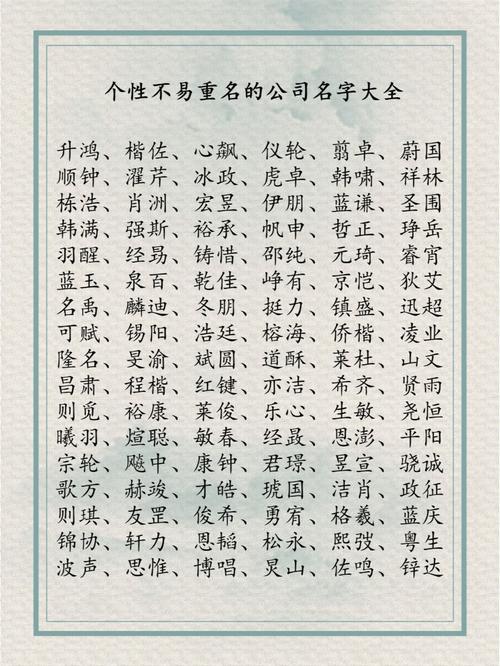 个性不易重名的公司名字大全
升鸿、楷佐、心飙、仪轮、翦卓、蔚国
顺钟、濯芹、冰政、虎卓、韩啸、祥林
栋浩、肖洲、宏昱、伊朋、蓝谦、圣围
韩满、强斯、裕承、帆申、哲正、琤岳
羽醒、经易、铸惜、邵纯、元琦、睿宵
蓝玉、泉百、乾佳、峥有、京恺、狄艾
名禹、麟迪、冬朋、挺力、镇盛、迅超
可赋、锡阳、浩廷、榕海、侨楷、凌业
隆名、旻渝、斌圆、道酥、莱杜、山文
昌肃、程楷、红键、亦洁、希齐、贤雨
则觅、裕康、莱俊、乐心、生敏、尧恒
曦羽、煊聪、敏春、经晸、恩澎、平阳
宗轮、飚中、康钟、君璟、昱宣、骁诚
歌方、赫竣、才皓、琥国、洁肖、政征
则琪、友罡、俊希、勇宥、格羲、蓝庆
锦协、轩力、恩韬、松永、熙弢、粤生
波声、思惟、博唱、炅山、佐鸣、锌达